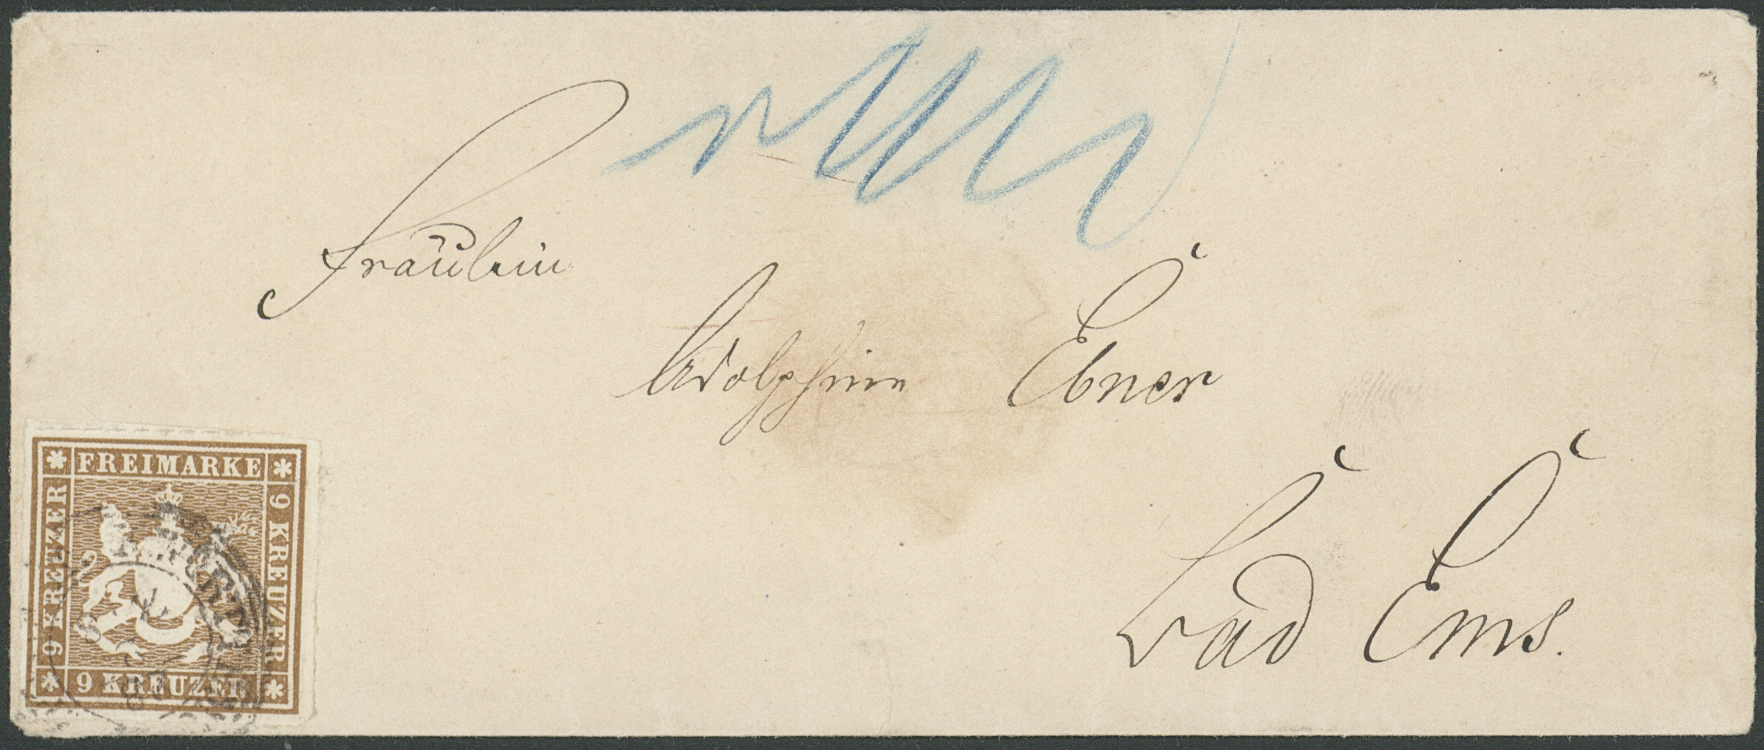 Fräulein
Adolphine Ebner
Bad Ems.
FREIMARKE
9 KREUZER
9 KREUZER
9 KREUZER